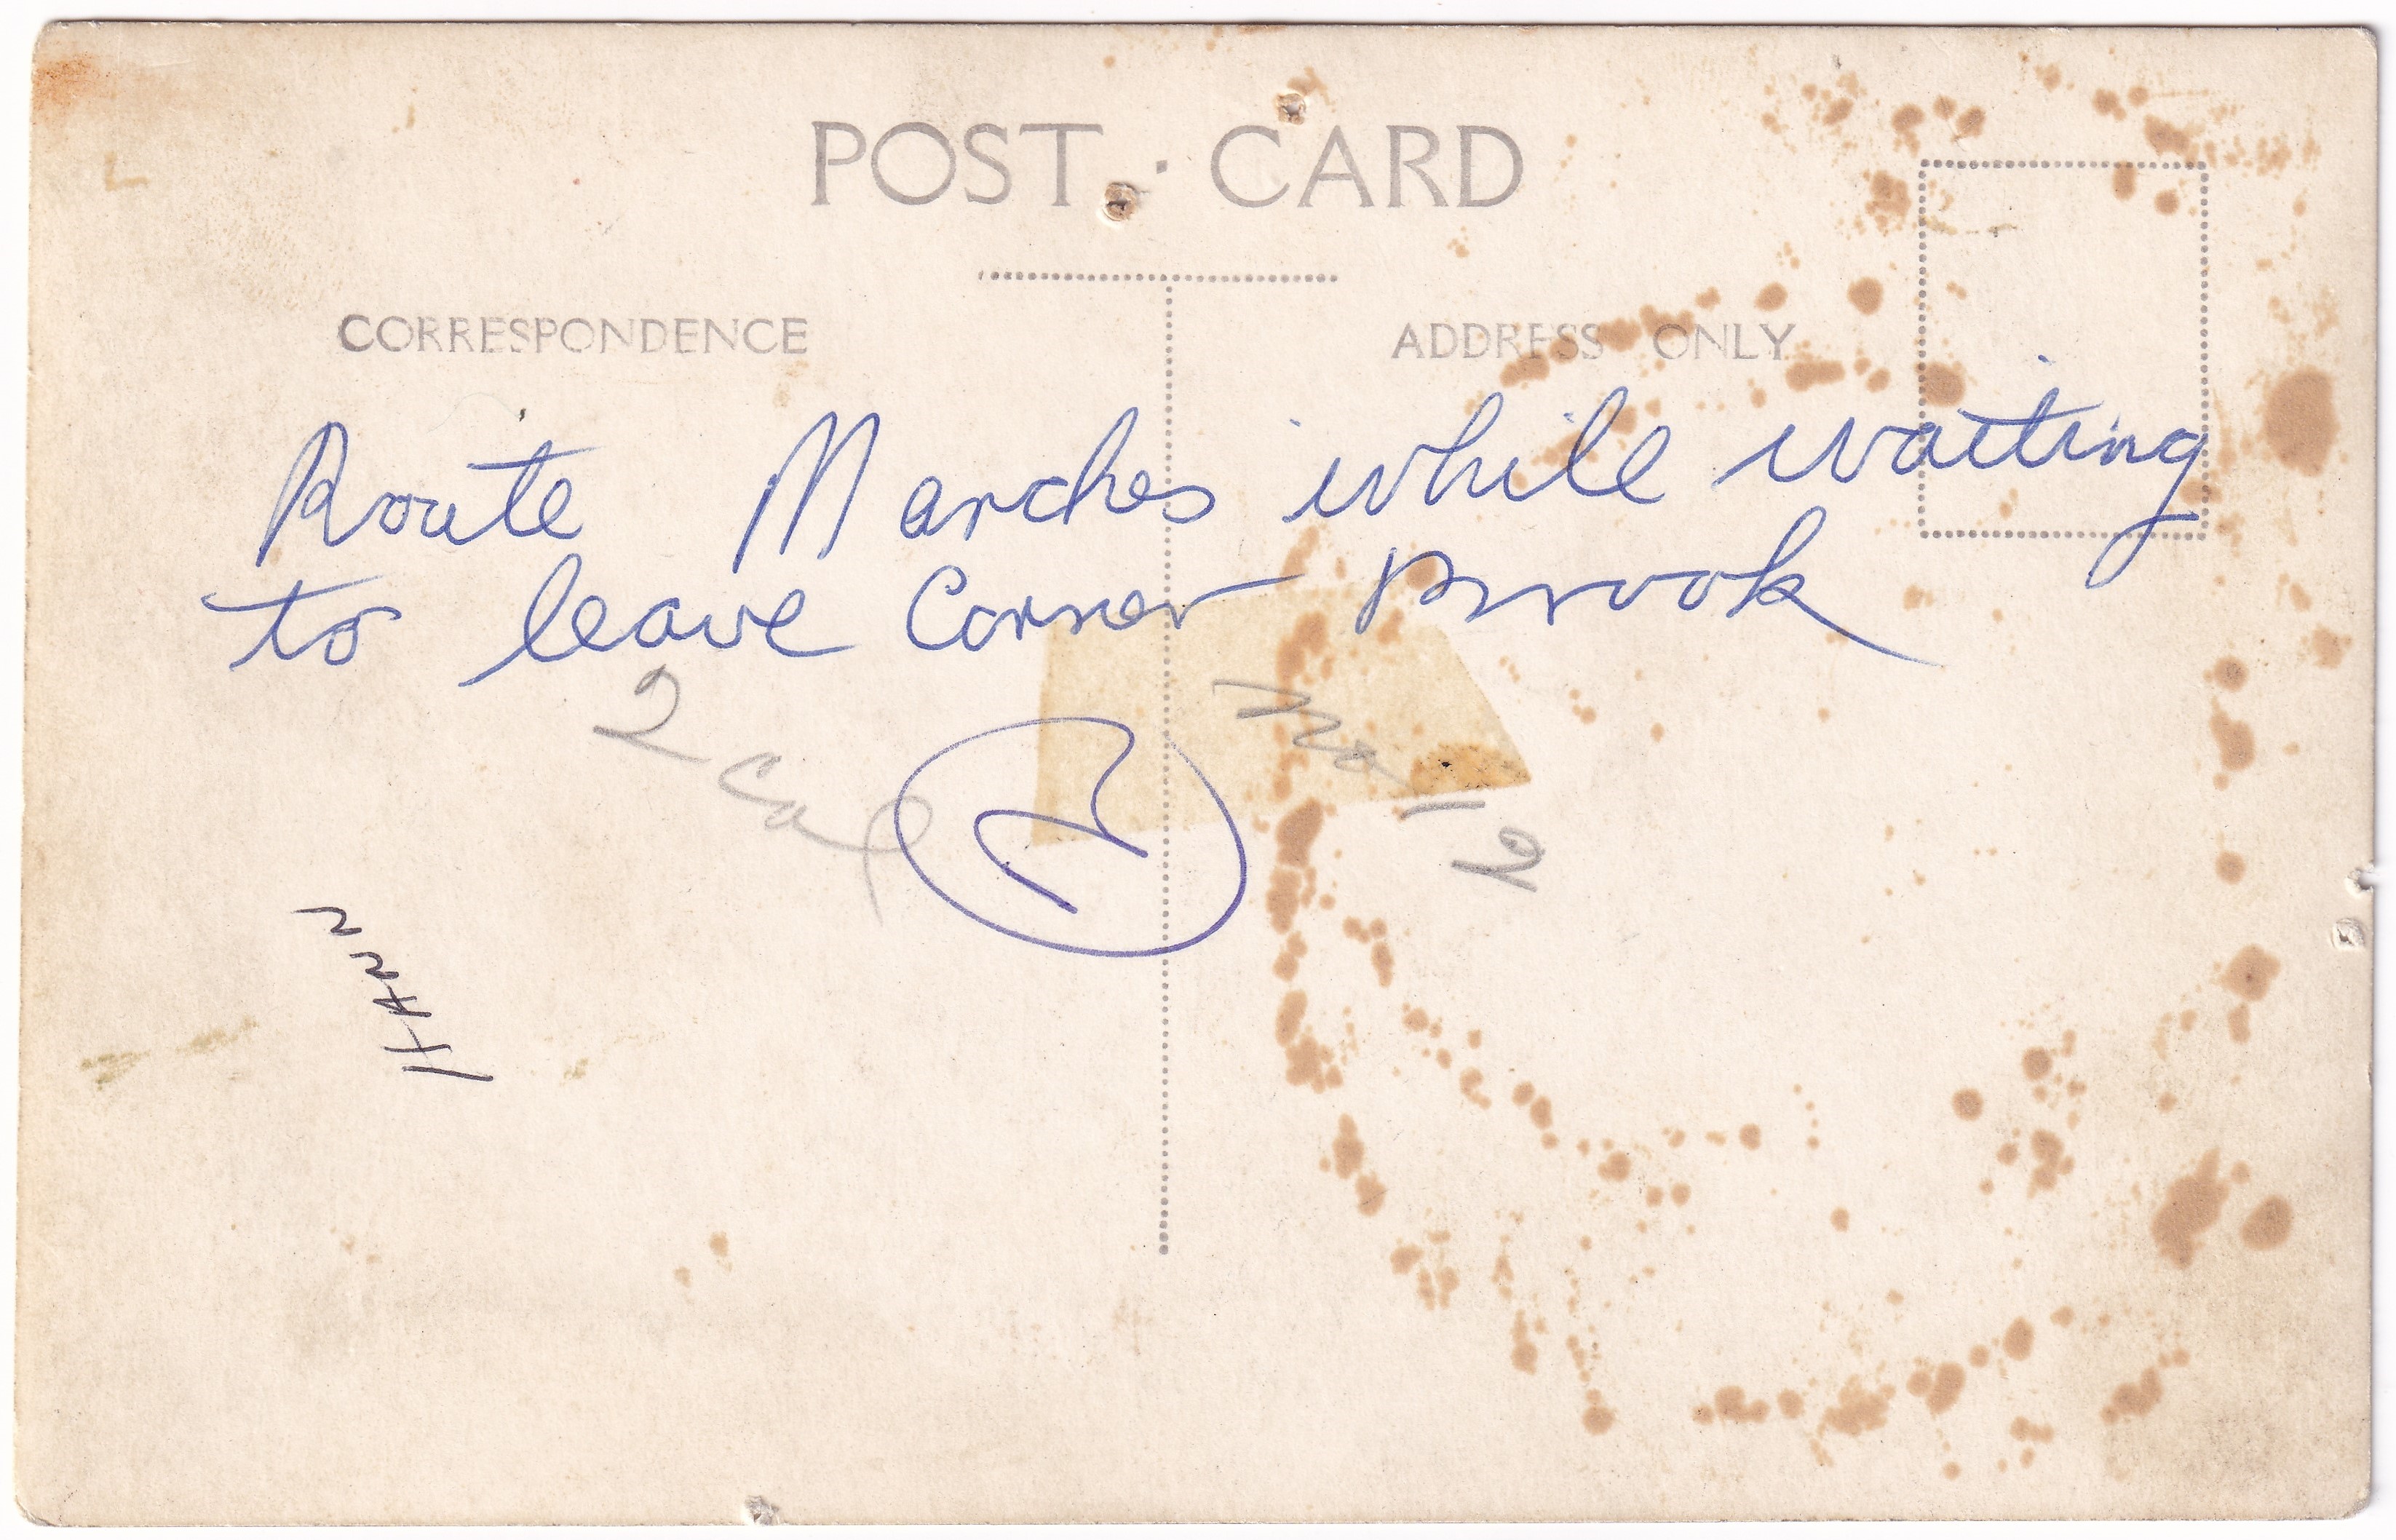 POST · CARD
CORRESPONDENCE
ADDRESS ONLY
Route Marches while waiting
to leave Corner Brook
2 Cop
No 12
2
HANN